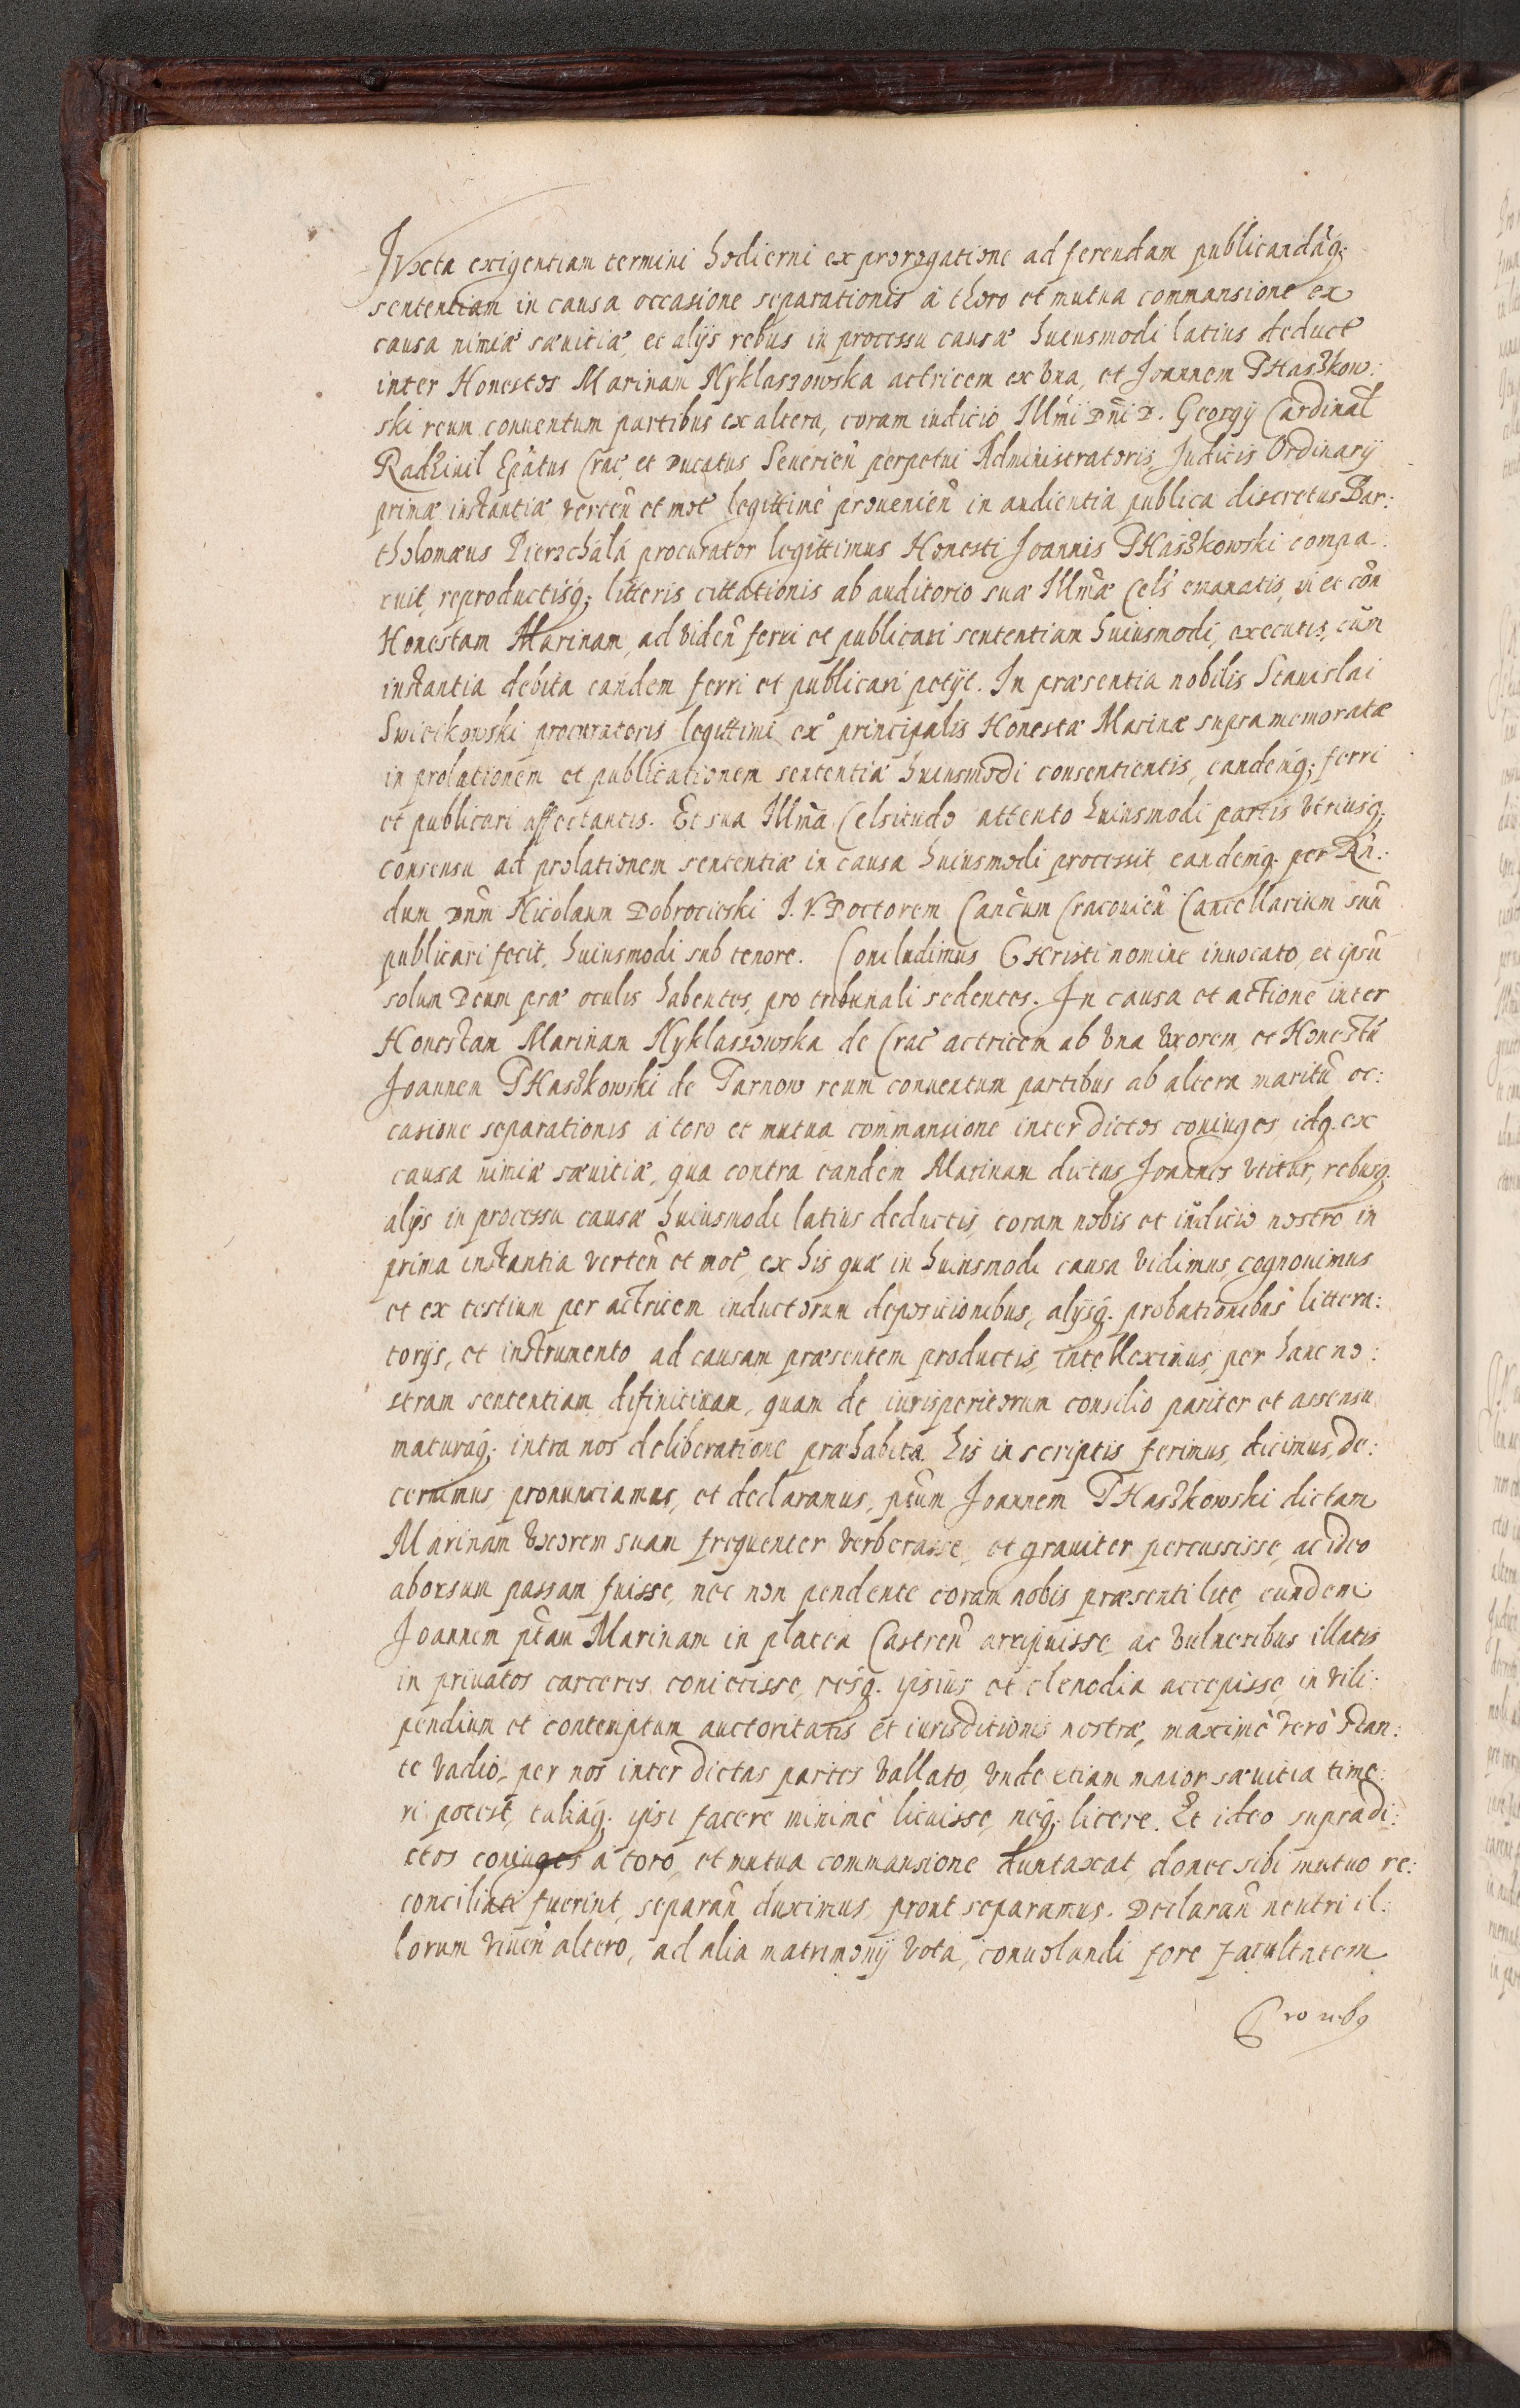 Juxta exigentiam termini hodierni ex prorogatione ad ferendam publicandãq;
sententiam in causa occasione separationis à thoro et mutua commansione ex
causa nimiæ sæuitiæ, et alijs rebus in processu causæ huiusmodi latius deduct̃
inter Honestos Marinam Nyklaszowska actricem ex vna, et Joannem THaszkow:
ski reum conuentum partibus ex altera, coram iudicio Illm̃i Dñi D. Georgij Cardinal̃
Radziuil Ep̃atus Crac̃ et Ducatus Seuerieñ perpetui Administratoris Judicis Ordinarij
primæ instantiæ verteñ et mot̃ legittimè prouenieñ in audientia publica discretus Bar:
tholomæus Pierzchálá procurator legittimus Honesti Joannis THaszkowski compa:
ruit, reproductisq; litteris cittationis ab auditorio suæ Illm̃æ Cels̃ emanatis, vt et coñ
Honestam Marinam, ad videñ ferri et publicari sententiam huiusmodi, executis, cũm
instantia debita eandem ferri et publicari petijt. In præsentia nobilis Stanislai
Swiecikowski procuratoris legittimi exº principalis Honestæ Marinæ supra memoratæ
in prolationem et publicationem sententiæ huiusmodi consentientis, eandem̃q; ferri
et publicari affectantis. Et sua Illm̃a Celsitudo attento huiusmodi partis vtriusq;
consensu ad prolationem sententiæ in causa huiusmodi processit, eandemq. per Rñ:
dum Dnm̃ Nicolaum Dobrocieski J. V. Doctorem Canc̃um Cracouieñ Cancellarium suũ
publicari fecit, huiusmodi sub tenore. Concludimus CHristi nomine inuocato, et ipsũ
solum Deum præ oculis habentes, pro tribunali sedentes. In causa et actione inter
Honestam Marinam Nyklaszowska de Crac̃ actricem ab vna vxorem, et Honestũ
Joannem THaszkowski de Tarnow reum conuentum partibus ab altera maritũ oc:
casione separationis à toro et mutua commansione inter dictos coniuges, idq. ex
causa nimiæ sæuitiæ, qua contra eandem Marinam dictus Joannes vtitur, rebusq.
alijs in processu causæ huiusmodi latius deductis, coram nobis et iudicio nostro in
prima instantia verteñ et mot̃, ex his quæ in huiusmodi causa vidimus, cognouimus
et ex testium per actricem inductorum depositionibus, alijsq. probationibus littera:
torijs, et instrumento ad causam præsentem productis, intelleximus, per hanc no:
stram sententiam definitiuam, quam de iurisperitorum consilio pariter et assensu
maturaq; intra nos deliberatione præhabita his in scriptis ferimus, dicimus, de:
cernimus, pronunciamus, et declaramus, pt̃um Joannem THaszkowski dictam
Marinam vxorem suam frequenter verberasse, et grauiter percussisse, ac ideo
aborsum passam fuisse, nec non pendente coram nobis præsenti lite, eundem
Joannem pt̃am Marinam in platea Castreñ arripuisse, ac vulneribus illatis
in priuatos carceres coniecisse, resq. ipsius et clenodia accepisse, in vili:
pendium et contemptum auctoritatis et iurisditionis nostræ, maximè verò stan:
te vadio, per nos inter dictas partes vallato, vnde etiam maior sæuitia time:
ri potest, taliaq; ipsi facere minimè licuisse, neq; licere. Et ideo supradi:
ctos coniuges à toro, et mutua commansione duntaxat, donec sibi mutuo re:
conciliati fuerint, separañ duximus, prout separamus. Declarañ neutri il:
lorum viueñ altero, ad alia matrimonij vota, conuolandi fore facultatem